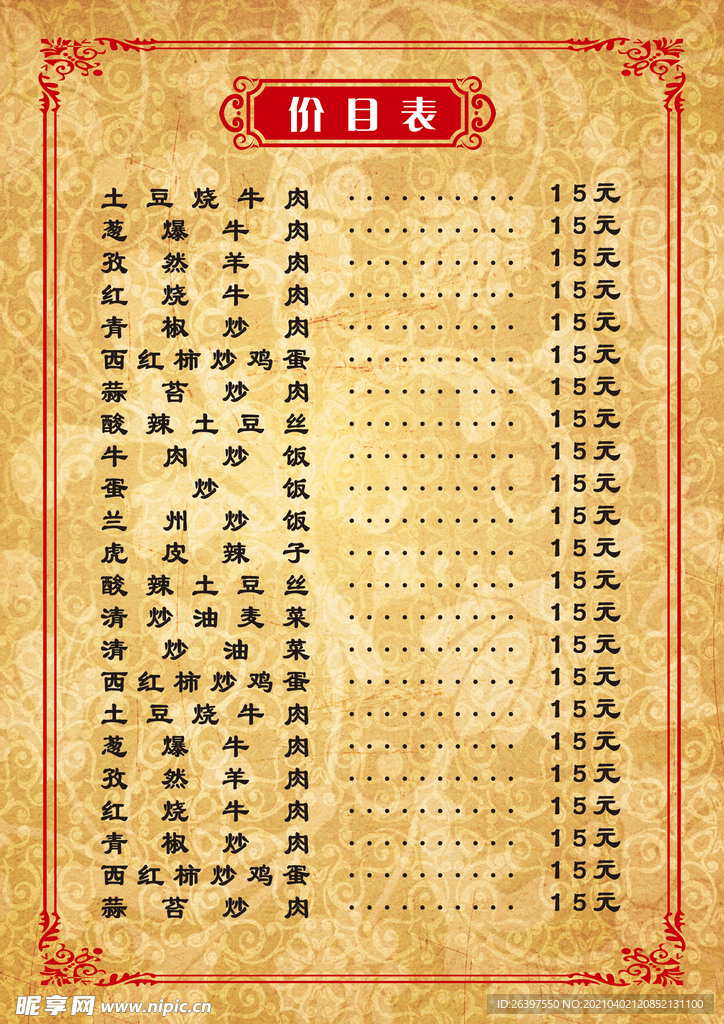 价目表
土豆烧牛肉 .......... 15元
葱爆牛肉 .......... 15元
孜然羊肉 .......... 15元
红烧牛肉 .......... 15元
青椒炒肉 .......... 15元
西红柿炒鸡蛋 .......... 15元
蒜苔炒肉 .......... 15元
酸辣土豆丝 .......... 15元
牛肉炒饭 .......... 15元
蛋炒饭 .......... 15元
兰州炒饭 .......... 15元
虎皮辣子 .......... 15元
酸辣土豆丝 .......... 15元
清炒油麦菜 .......... 15元
清炒油菜 .......... 15元
西红柿炒鸡蛋 .......... 15元
土豆烧牛肉 .......... 15元
葱爆牛肉 .......... 15元
孜然羊肉 .......... 15元
红烧牛肉 .......... 15元
青椒炒肉 .......... 15元
西红柿炒鸡蛋 .......... 15元
蒜苔炒肉 .......... 15元
昵享网 www.nipic.cn
ID:26397550 NO:20210402120852131100